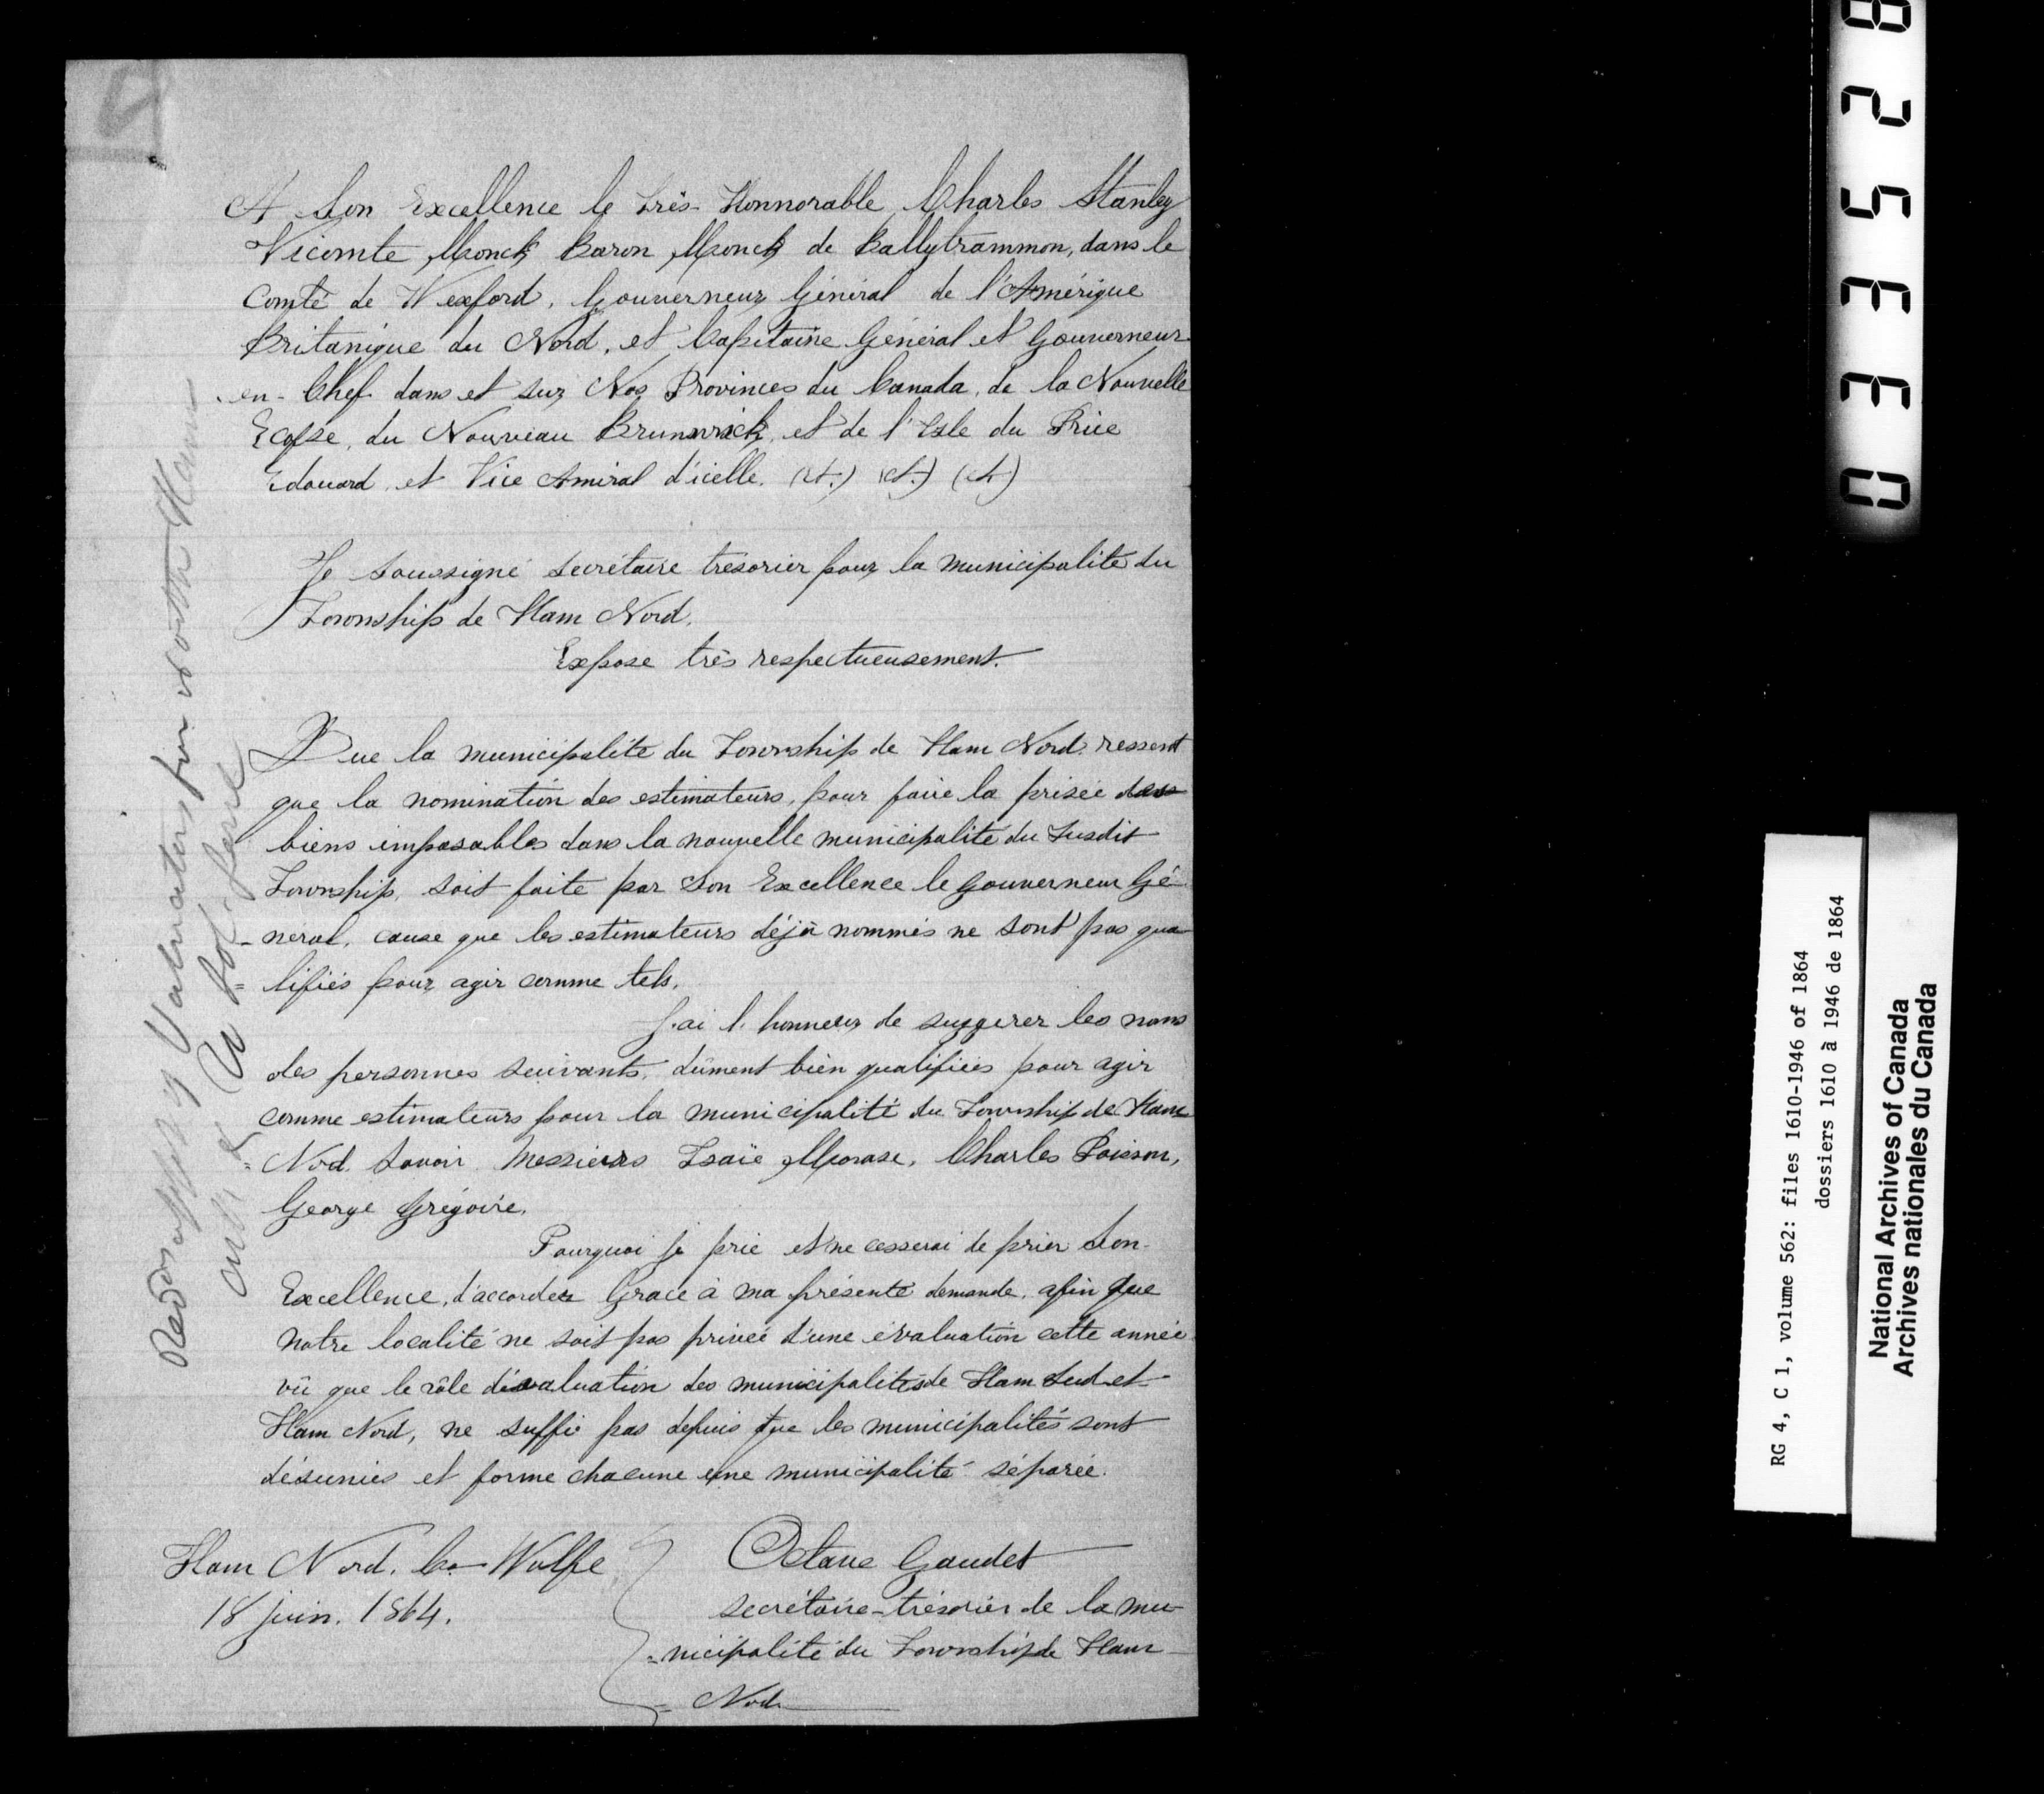 A Son Excellence le très-Honnorable, Charles Stanley
Vicomte, Monck Baron, Monck de Ballytrammon, dans le
Comté de Wexford, Gouverneur Général de l'Amérique
Britanique du Nord, et Capitaine Général et Gouverneur
en-Chef dans et sur Nos Provinces du Canada, de la Nouvelle
Ecosse, du Nouveau Brunswick, et de l'Isle du Price
Edouard, et Vice Amiral d'icelle. (&.) (&.) (&)
Je soussigné secrétaire trésorier pour la municipalité du
Township de Ham Nord.
Expose très respectueusement.
Que la municipalité du Township de Ham Nord ressent
que la nomination des estimateurs, pour faire la prisée des
biens imposables dans la nouvelle municipalité du susdit
Township, soit faite par Son Excellence le Gouverneur Gé
-néral, cause que les estimateurs déjà nommés ne sont pas qua
=lifiés pour agir comme tels.
J.ai l. honneur de suggerer les noms
des personnes suivants, dûment bien qualifiées pour agir
comme estimateurs pour la municipalité du Township de Ham
=Nord. Savoir Messieurs Isaïe Morase, Charles Poisson,
George Grégoire.
Pourquoi je prie et ne cesserai de prier Son-
Excellence, d'accorder Grace à ma présente demande, afin que
notre localité ne soit pas privée d'une évaluation cette année
vû que le rôle d'évaluation des municipalités de Ham Sud et
Ham Nord, ne suffi pas depuis que les municipalités sont
désunies et forme chacune une municipalité séparée.
Ham Nord, Co Wolfe
18 juin. 1864.
Octave Gaudet
secrétaire-trésorier de la mu-
=nicipalité du Township de Ham
=Nord
Valuators for North Ham
RG 4, C 1, volume 562: files 1610-1946 of 1864
dossiers 1610 à 1946 de 1864
National Archives of Canada
Archives nationales du Canada